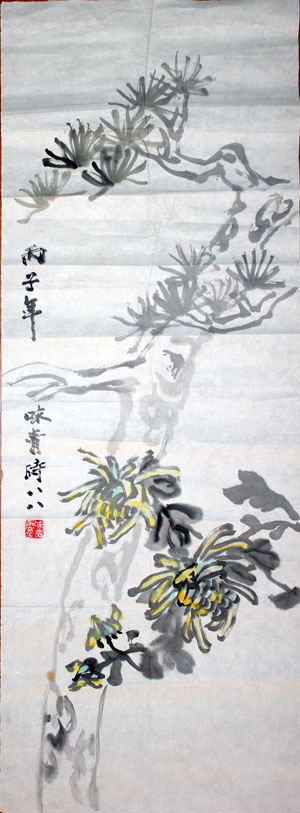 丙子年
咏青時八八